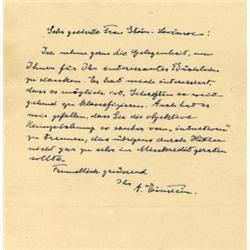 Sehr geehrte Frau Stein-Lewinson:
Ich nehme gerne die Gelegenheit, um
Ihnen für Ihr interessantes Büchlein
zu danken. Es hat mich interessiert,
dass es möglich ist, Schriften so weit-
gehend zu klassifizieren. Auch hat es
mir gefallen, dass Sie die objektive
Kennzeichnung so sauber vom „intuitiven"
zu trennen, das übrigens durch Hitler
nicht gar zu sehr in Misskredit geraten
sollte.
Freundlich grüssend
Ihr
A. Einstein.